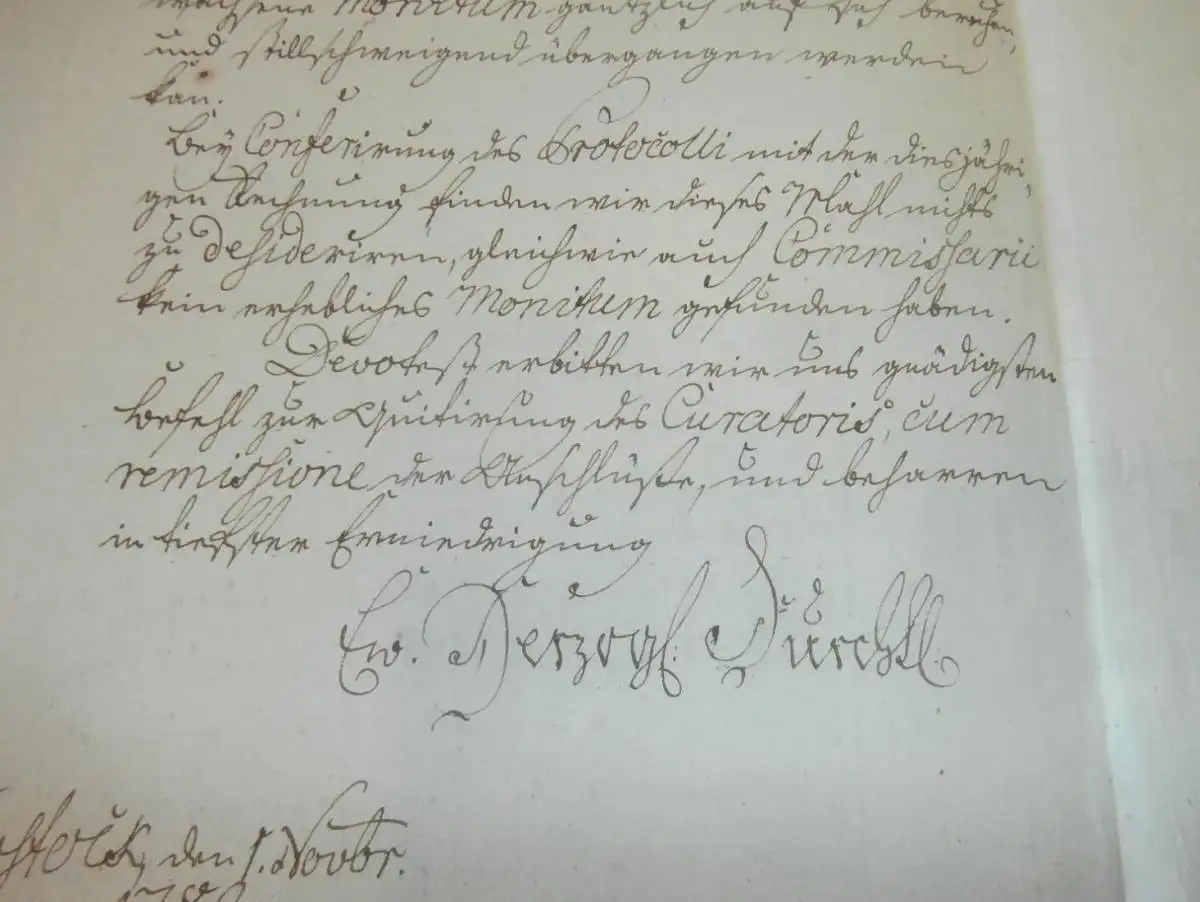 wachsene Monitum gäntzlich auf sich beruhen,
und stillschweigend übergangen werden
kan.
Bey Conferirung des Protocolli mit der diesjähri-
gen Rechnung finden wir dieses Mahl nichts
zu desideriren, gleichwie auch Commissarii
kein erhebliches Monitum gefunden haben.
Devotest erbitten wir uns gnädigsten
Befehl zur Quitirung des Curatoris, cum
remissione der Anschlüße, und beharren
in tiefster Erniedrigung
Ew. Herzogl. Durchtl.
den 1. Novbr.